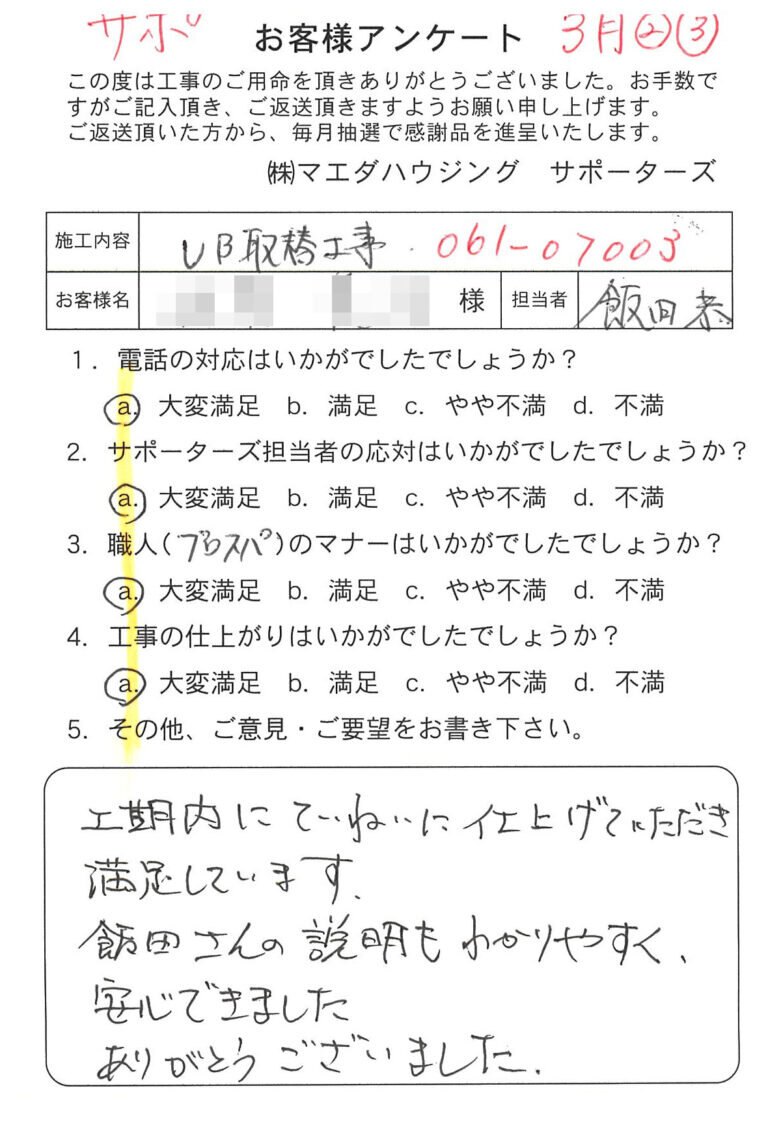 サポ お客様アンケート 3月②③
この度は工事のご用命を頂きありがとうございました。お手数で
すがご記入頂き、ご返送頂きますようお願い申し上げます。
ご返送頂いた方から、毎月抽選で感謝品を進呈いたします。
㈱マエダハウジング サポーターズ
施工内容 UB取替工事 061-07003
お客様名 様 担当者 飯田恭
1. 電話の対応はいかがでしたでしょうか？
a. 大変満足 b. 満足 c. やや不満 d. 不満
2. サポーターズ担当者の応対はいかがでしたでしょうか？
a. 大変満足 b. 満足 c. やや不満 d. 不満
3. 職人(プロスパ)のマナーはいかがでしたでしょうか？
a. 大変満足 b. 満足 c. やや不満 d. 不満
4. 工事の仕上がりはいかがでしたでしょうか？
a. 大変満足 b. 満足 c. やや不満 d. 不満
5. その他、ご意見・ご要望をお書き下さい。
工期内にていねいに仕上げていただき
満足しています.
飯田さんの説明もわかりやすく、
安心できました
ありがとうございました.